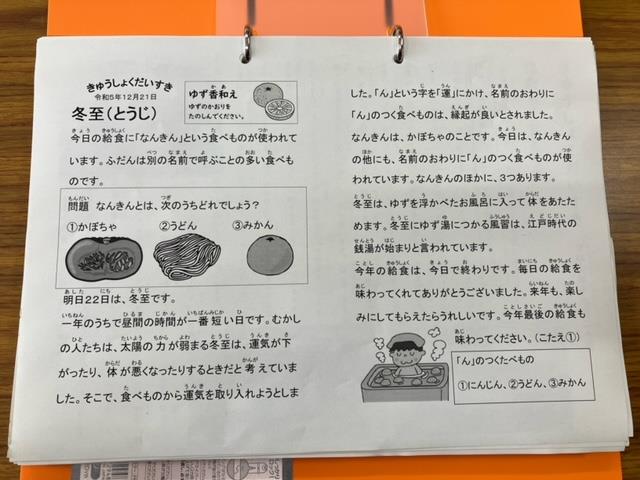 きゅうしょくだいすき
令和5年12月21日
冬至(とうじ)
ゆず香和え
ゆずのかおりを
たのしんでください。
今日の給食に「なんきん」という食べものが使われて
います。ふだんは別の名前で呼ぶことの多い食べも
のです。
問題 なんきんとは、次のうちどれでしょう?
①かぼちゃ ②うどん ③みかん
明日22日は、冬至です。
一年のうちで昼間の時間が一番短い日です。むかし
の人たちは、太陽の力が弱まる冬至は、運気が下
がったり、体が悪くなったりするときだと考えていま
した。そこで、食べものから運気を取り入れようとしま
した。「ん」という字を「運」にかけ、名前のおわりに
「ん」のつく食べものは、縁起が良いとされました。
なんきんは、かぼちゃのことです。今日は、なんきん
の他にも、名前のおわりに「ん」のつく食べものが使
われています。なんきんのほかに、3つあります。
冬至は、ゆずを浮かべたお風呂に入って体をあたた
めます。冬至にゆず湯につかる風習は、江戸時代の
銭湯が始まりと言われています。
今年の給食は、今日で終わりです。毎日の給食を
味わってくれてありがとうございました。来年も、楽し
みにしてもらえたらうれしいです。今年最後の給食も
味わってください。(こたえ①)
「ん」のつくたべもの
①にんじん、②うどん、③みかん